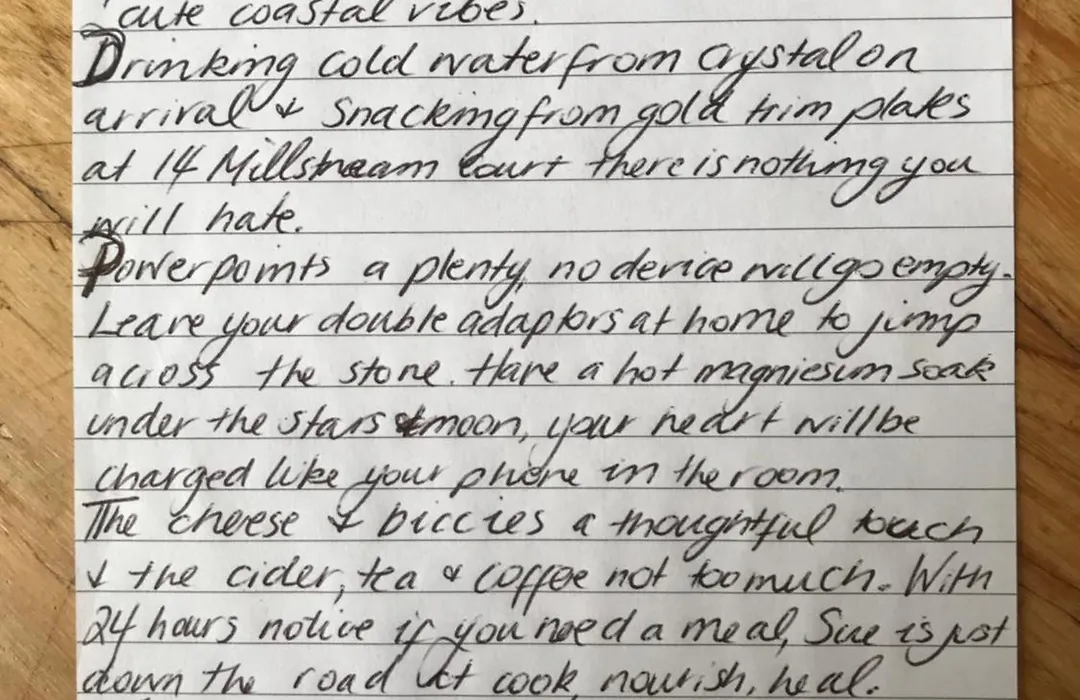 cute coastal vibes.
Drinking cold water from crystal on
arrival & snacking from gold trim plates
at 14 Millstream Court there is nothing you
will hate.
Powerpoints a plenty, no device will go empty.
Leave your double adaptors at home to jump
across the stone. Have a hot magniesim soak
under the stars & moon, your heart will be
charged like your phone in the room.
The cheese & biccies a thoughtful touch
& the cider, tea & coffee not too much. With
24 hours notice if you need a meal, Sue is just
down the road at cook, nourish, heal.